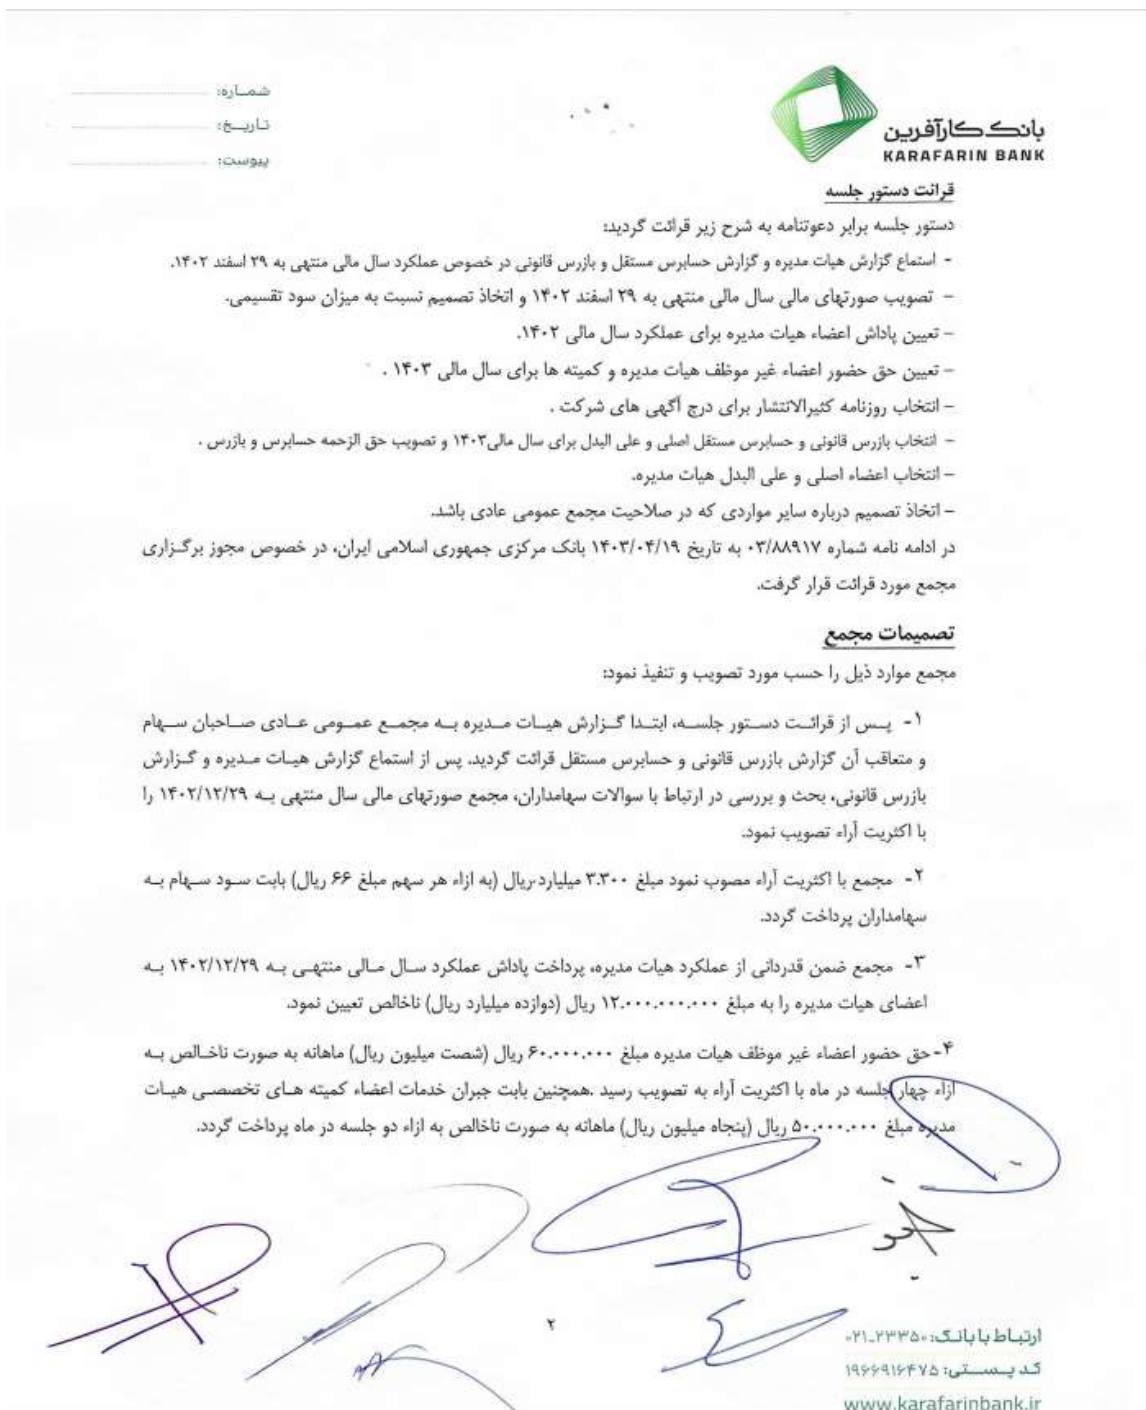 شماره:
تاریخ:
پیوست:
بانک کارآفرین
KARAFARIN BANK
قرائت دستور جلسه
دستور جلسه برابر دعوتنامه به شرح زیر قرائت گردید:
- استماع گزارش هیات مدیره و گزارش حسابرس مستقل و بازرس قانونی در خصوص عملکرد سال مالی منتهی به ۲۹ اسفند ۱۴۰۲.
- تصویب صورتهای مالی سال مالی منتهی به ۲۹ اسفند ۱۴۰۲ و اتخاذ تصمیم نسبت به میزان سود تقسیمی.
- تعیین پاداش اعضاء هیات مدیره برای عملکرد سال مالی ۱۴۰۲.
- تعیین حق حضور اعضاء غیر موظف هیات مدیره و کمیته ها برای سال مالی ۱۴۰۳ .
- انتخاب روزنامه کثیرالانتشار برای درج آگهی های شرکت .
- انتخاب بازرس قانونی و حسابرس مستقل اصلی و علی البدل برای سال مالی۱۴۰۳ و تصویب حق الزحمه حسابرس و بازرس .
- انتخاب اعضاء اصلی و علی البدل هیات مدیره.
- اتخاذ تصمیم درباره سایر مواردی که در صلاحیت مجمع عمومی عادی باشد.
در ادامه نامه شماره ۰۳/۸۸۹۱۷ به تاریخ ۱۴۰۳/۰۴/۱۹ بانک مرکزی جمهوری اسلامی ایران، در خصوص مجوز برگزاری
مجمع مورد قرائت قرار گرفت.
تصمیمات مجمع
مجمع موارد ذیل را حسب مورد تصویب و تنفیذ نمود:
۱- پس از قرائت دستور جلسه، ابتدا گزارش هیات مدیره به مجمع عمومی عادی صاحبان سهام
و متعاقب آن گزارش بازرس قانونی و حسابرس مستقل قرائت گردید. پس از استماع گزارش هیات مدیره و گزارش
بازرس قانونی، بحث و بررسی در ارتباط با سوالات سهامداران، مجمع صورتهای مالی سال منتهی به ۱۴۰۲/۱۲/۲۹ را
با اکثریت آراء تصویب نمود.
۲- مجمع با اکثریت آراء مصوب نمود مبلغ ۳.۳۰۰ میلیارد ریال (به ازاء هر سهم مبلغ ۶۶ ریال) بابت سود سهام به
سهامداران پرداخت گردد.
۳- مجمع ضمن قدردانی از عملکرد هیات مدیره، پرداخت پاداش عملکرد سال مالی منتهی به ۱۴۰۲/۱۲/۲۹ به
اعضای هیات مدیره را به مبلغ ۱۲.۰۰۰.۰۰۰.۰۰۰ ریال (دوازده میلیارد ریال) ناخالص تعیین نمود.
۴-حق حضور اعضاء غیر موظف هیات مدیره مبلغ ۶۰.۰۰۰.۰۰۰ ریال (شصت میلیون ریال) ماهانه به صورت ناخالص به
ازاء چهار جلسه در ماه با اکثریت آراء به تصویب رسید .همچنین بابت جبران خدمات اعضاء کمیته های تخصصی هیات
مدیره مبلغ ۵۰.۰۰۰.۰۰۰ ریال (پنجاه میلیون ریال) ماهانه به صورت ناخالص به ازاء دو جلسه در ماه پرداخت گردد.
۲
ارتباط با بانک: ۰۲۱-۲۳۳۵۰
کد پستی: ۱۹۶۶۹۱۶۴۷۵
www.karafarinbank.ir